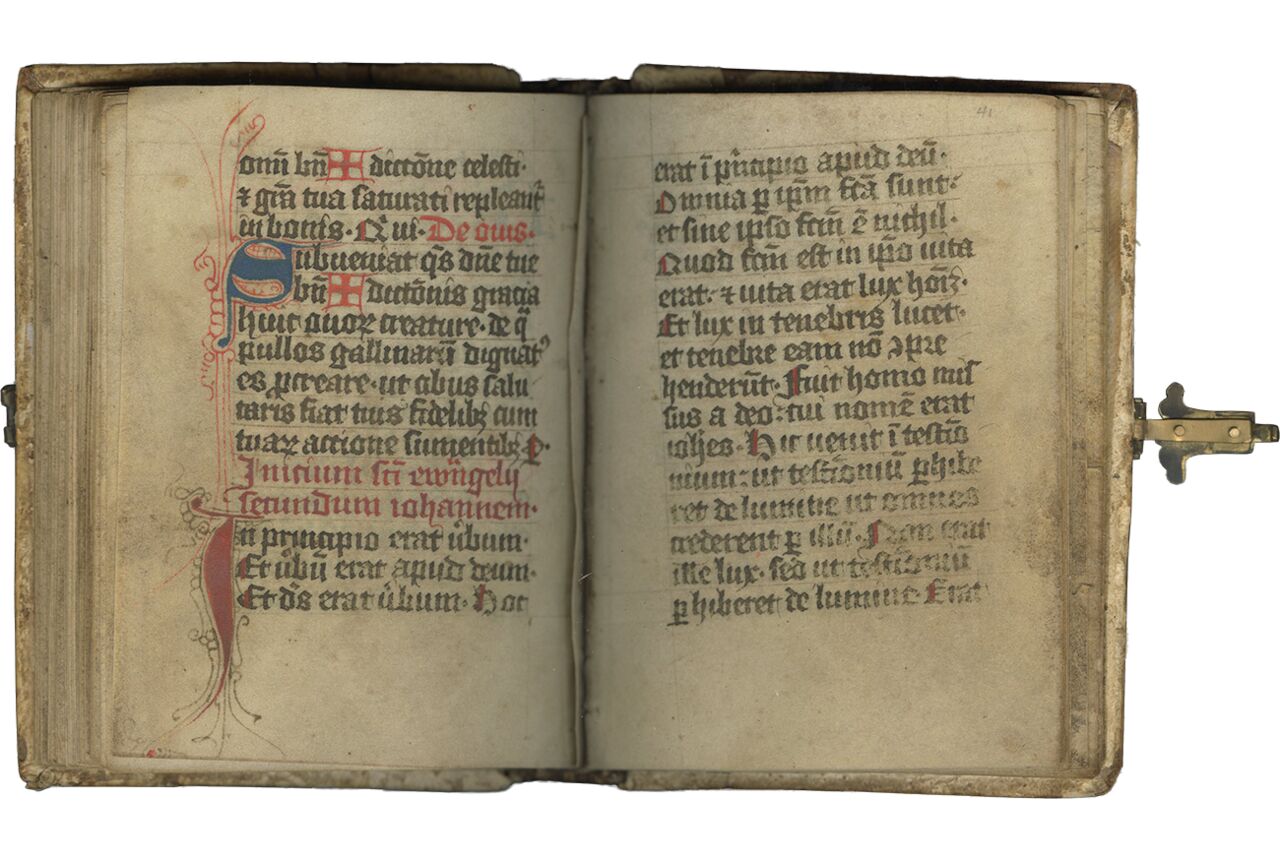 om̄ bn̄ ✠ dictōne celesti·
⁊ gr̄a tua saturati repleant᷑
in bonis· Qui· De ouis·
Subueniat qs̄ dn̄e tue
bn̄ ✠ dictōnis gracia
huic ouoꝝ creature· de qͥ
pullos gallinarū dignatꝰ
es ꝓcreare· ut cibus salu
taris fiat tuis fidelibꝫ cum
tuaꝝ accione sumentibꝫ P·
Inicium sc̄i ewāgelij
secundum iohannem·
In principio erat u̇bum·
Et u̇bū erat apud deum·
Et ds̄ erat u̇bum· Hoc
41
erat ī pͥncipio apud deū·
Omnia ꝑ ip̄m fc̄a sunt·
et sine ipso fc̄m ē nichil·
Quod fc̄m est in ip̄o uita
erat· ⁊ uita erat lux hoīꝫ·
Et lux in tenebris lucet·
et tenebre eam nō ꝯpre
henderūt· Fuit homo mis
sus a deo: cui nomē erat
ioh̄es· Hic uenit ī testīo
nium: ut testīoniū ꝑhibe
ret de lumine ut omnes
crederent ꝑ illū· Non erat
ille lux· sed ut testīoniū
ꝑhiberet de lumine Erat